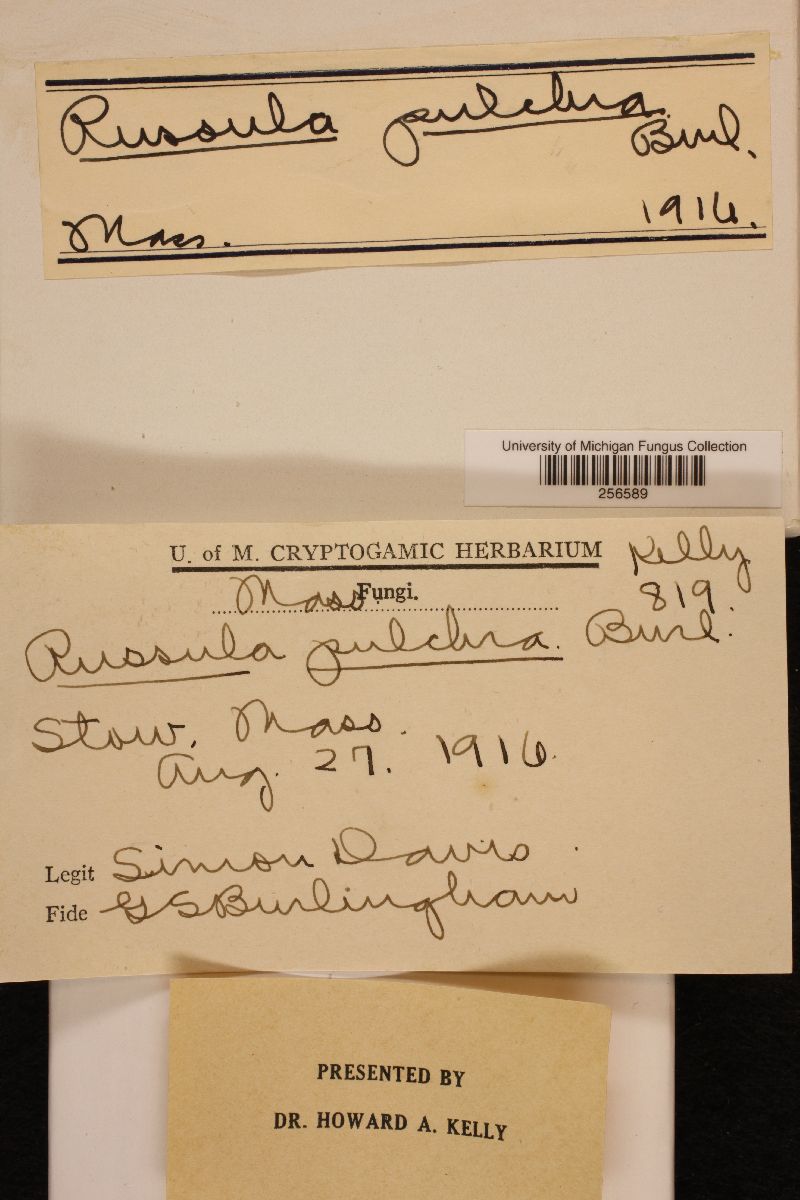 Russula pulchra
Burl.
Mass. 1916.
University of Michigan Fungus Collection
256589
U. of M. CRYPTOGAMIC HERBARIUM
Kelly
Mass. Fungi.
819.
Russula pulchra. Burl.
Stow, Mass.
Aug. 27. 1916.
Legit Simon Davis.
Fide GSBurlingham
PRESENTED BY
DR. HOWARD A. KELLY